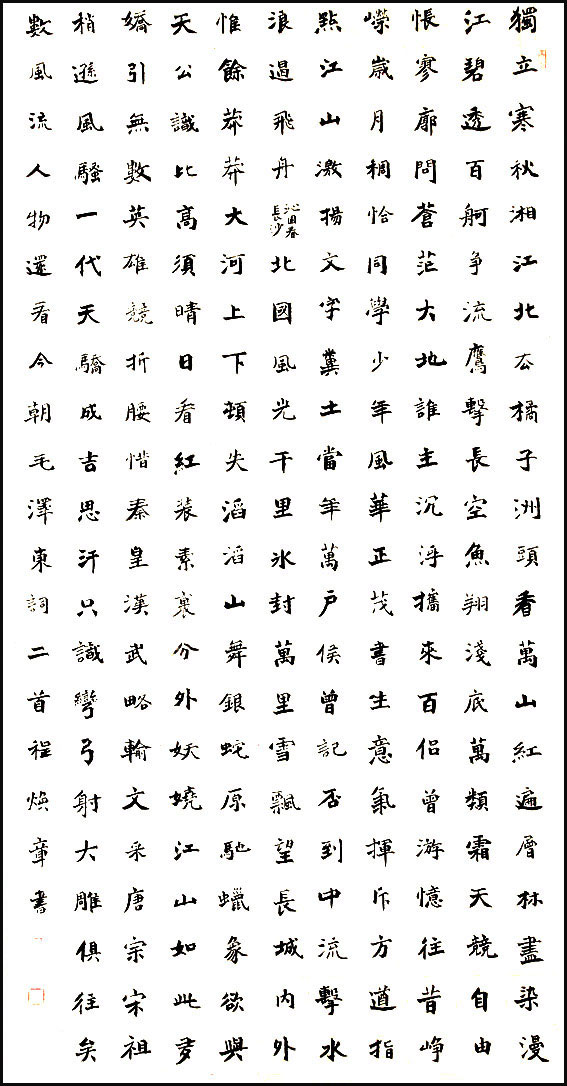 獨立寒秋湘江北去橘子洲頭看萬山紅遍層林盡染漫
江碧透百舸爭流鷹擊長空魚翔淺底萬類霜天競自由
悵寥廓問蒼茫大地誰主沉浮攜來百侶曾游憶往昔崢
嶸歲月稠恰同學少年風華正茂書生意氣揮斥方遒指
點江山激揚文字糞土當年萬戶侯曾記否到中流擊水
浪遏飛舟沁園春長沙北國風光千里冰封萬里雪飄望長城內外
惟餘莽莽大河上下頓失滔滔山舞銀蛇原馳蠟象欲與
天公試比高須晴日看紅裝素裹分外妖嬈江山如此多
嬌引無數英雄競折腰惜秦皇漢武略輸文采唐宗宋祖
稍遜風騷一代天驕成吉思汗只識彎弓射大雕俱往矣
數風流人物還看今朝毛澤東詞二首程煥章書